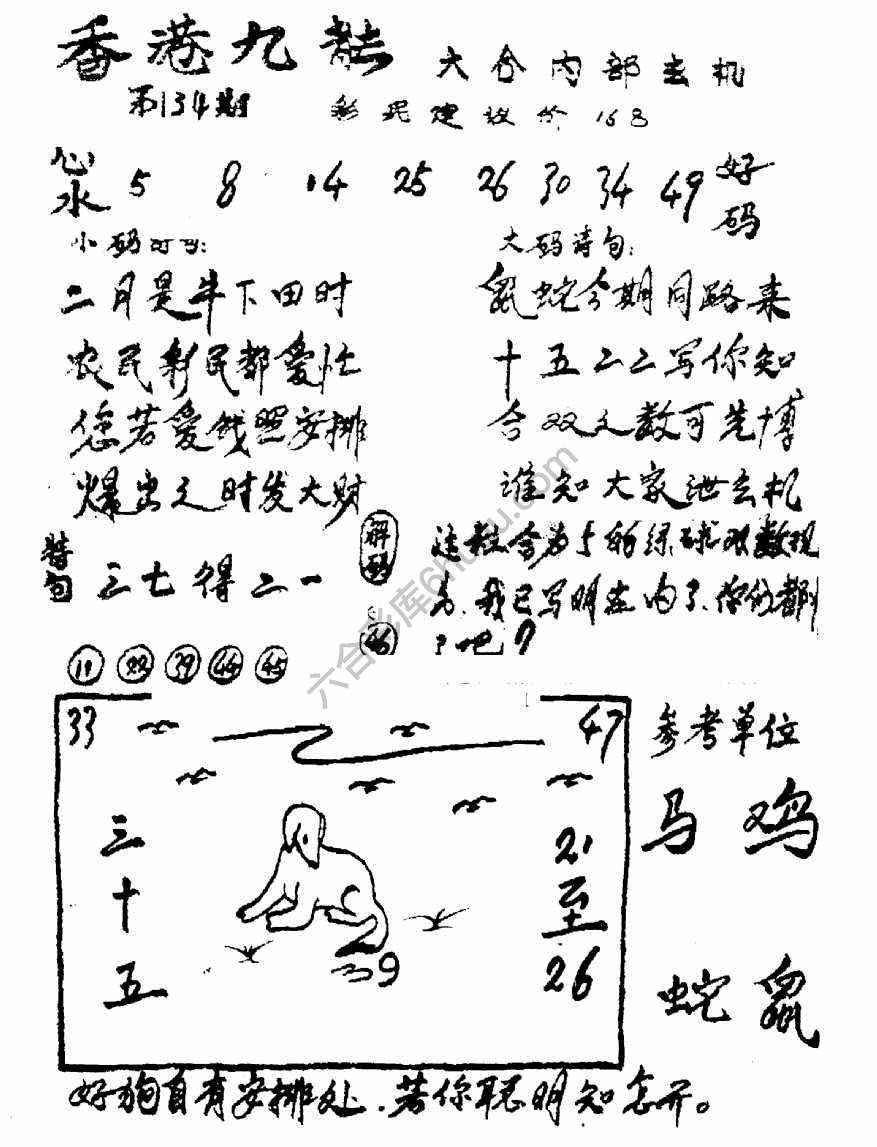 香港九龙
六合内部玄机
第134期
彩民建议价168
心水 5 8 14 25 26 30 34 49 好码
小码诗句:
二月是牛下田时
农民彩民都爱忙
您若爱钱照安排
爆出之时发大财
大码诗句:
鼠蛇今期同路来
十五二二写你知
合双之数可先博
谁知大家泄玄机
特句
三七得二一
解码
46
这粒合为5的绿球双数现
为,我已写明在内了,你们都
了吧?
11 22 39 44 45
33
47
三十五
21至26
39
参考单位
马 鸡
蛇 鼠
好狗自有安排处,若你聪明知怎开。
六合彩库6huku.com